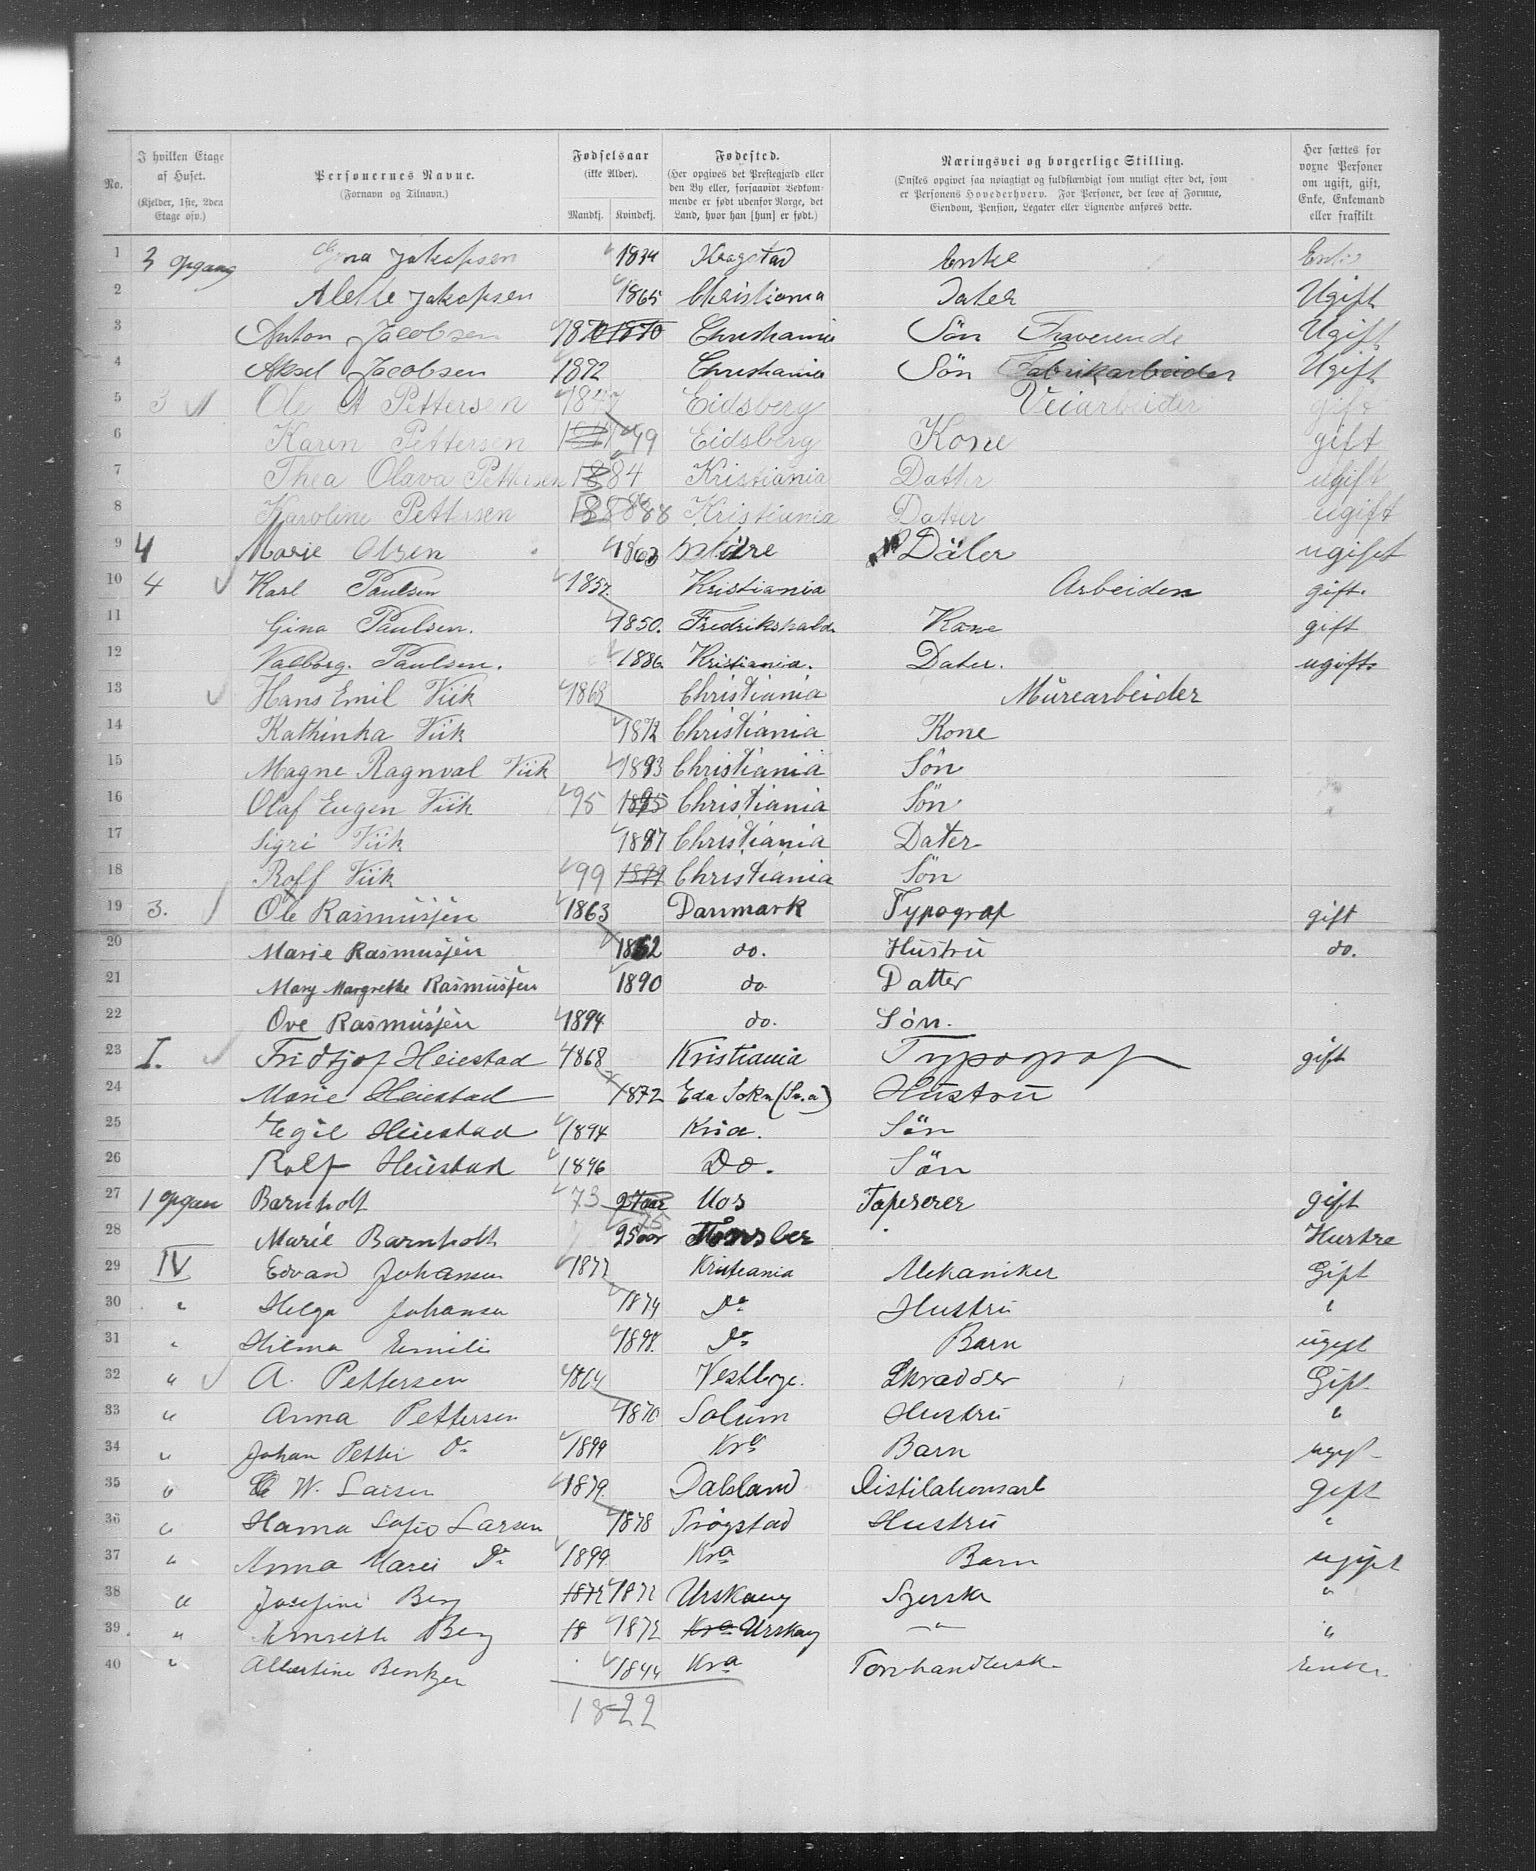 No.
I hvilken Etage af Huset. (Kjelder, 1ste, 2den Etage osv.)
Personernes Navne. (Fornavn og Tilnavn.)
Fødselsaar (ikke Alder). Mandkj. Kvindekj.
Fødested. (Her opgives det Prestegjæld eller den By eller, forsaavidt Vedkommende er født udenfor Norge, det Land, hvor han [hun] er født.)
Næringsvei og borgerlige Stilling. (Ønskes opgivet saa nøiagtigt og fuldstændigt som muligt efter det, som er Personens Hovederhverv. For Personer, der leve af Formue, Eiendom, Pension, Legater eller Lignende anføres dette.
Her sættes for voxne Personer om ugift, gift, Enke, Enkemand eller fraskilt
1 3 opgang Gina Jakopsen 1834 Enke Enke
2 Alette Jakopsen 1865 Christiania Dater Ugift
3 Anton Jacobsen 1870 1870 Christiania Søn Fraverende Ugift
4 Aksel Jacobsen 1872 Christiania Søn Fabrikarbeider Ugift
5 3 Ole A Pettersen 1847 Eidsberg Veiarbeider gift
6 Karen Pettersen 49 Eidsberg Kone gift
7 Thea Olava Pettersen 1884 Kristiania Datter ugift
8 Karoline Pettersen 1888 88 Kristiania Datter ugift
9 4 Marie Olsen 1863 ugift
10 4 Karl Paulsen 1857. Kristiania Arbeiden gift.
11 Gina Paulsen. 1850. Fredrikshald. Kone gift
12 Valborg. Paulsen. 1886 Kristiania. Dater. ugift
13 Hans Emil Viik 1868 Christiania Mürearbeider
14 Kathinka Viik 1872 Christiania Kone
15 Magne Ragnval Viik 1893 Christiania Søn
16 Olaf Eugen Viik 95 1895 Christiania Søn
17 Sigri Viik 1897 Christiania Dater
18 Roff Viik 99 1899 Christiania Søn
19 3. Ole Rasmussen 1863 Danmark Typograf gift
20 Marie Rasmussen 1862 do. Hustru do.
21 Mary Margrethe Rasmussen 1890 do Datter
22 Ove Rasmussen 1894 do. Søn.
23 I. Fridtjof Heiestad 1868 Kristiania Typograf gift
24 Marie Heiestad 1872 Eda Sokn (Sv.a) Hustru
25 Egil Heiestad 1894 Kria. Søn
26 Rolf Heiestad 1896 Do. Søn
27 1 opgan Barnholt 73 27 aar Mos Tapeserer gift
28 Marie Barnholt 75 25 aar Tønsber Hustre
29 IV Edvard Johansen 1877 Kristiania Mekaniker Gift
30 " Helga Johansen 1874 Do Hustru "
31 " Hilma Emilie 1898. Do Barn ugift
32 " A. Pettersen 1864 Skrædder Gift
33 " Anna Pettersen 1870 Solum Hustru "
34 " Johan Petter Do 1899 Kra Barn ugift
35 " W. Larsen 1879 Dalsland Distilationsarb gift
36 " Hanna Sofie Larsen 1878 Trögstad Hustru "
37 " Anna Marie Do 1899 Kra Barn ugift
38 " Josefine Berg 1872 1872 Urskoug Syerske "
39 " Berg 18 1872 Kra Urskoug " "
40 " Albertine 1844 Kra Torvhandlersk Enke.
18-22